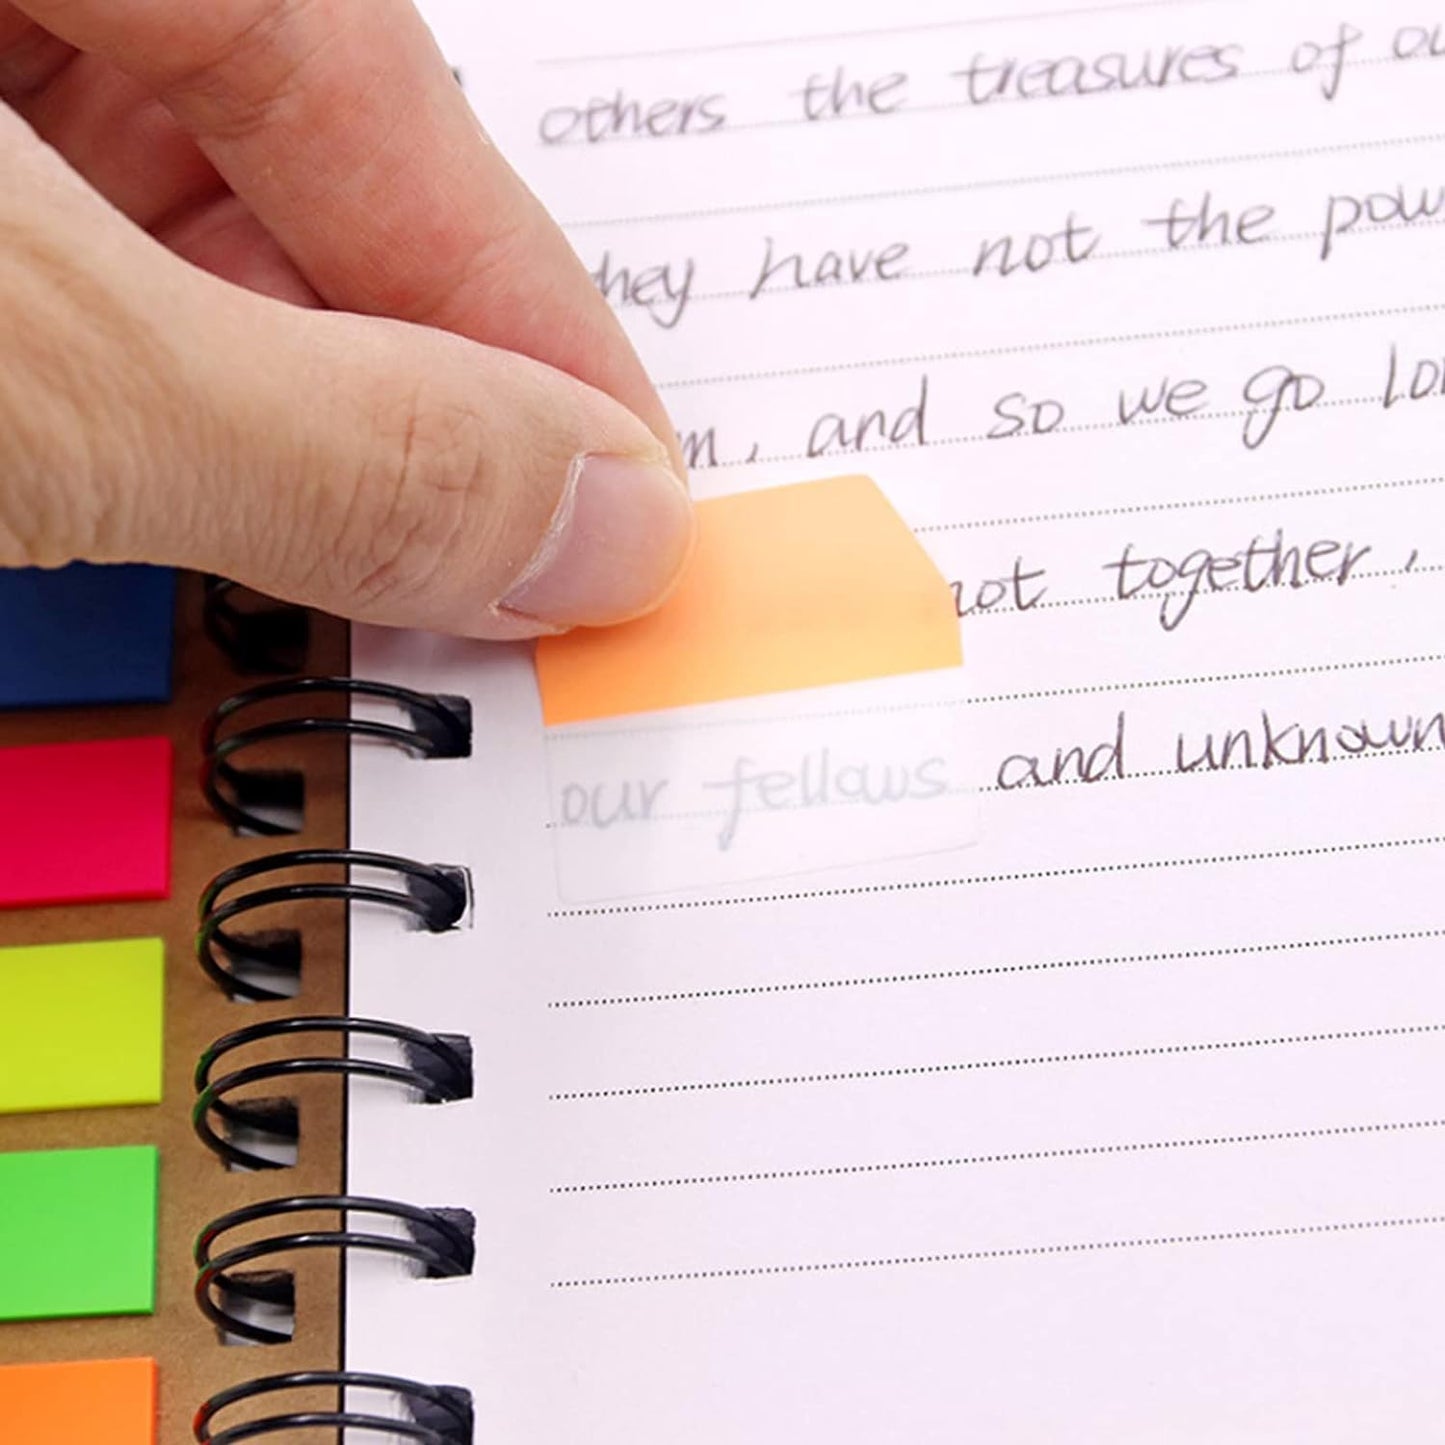 others the treasures of
hey have not the pow
m, and so we go
not together,
our fellows and unknown